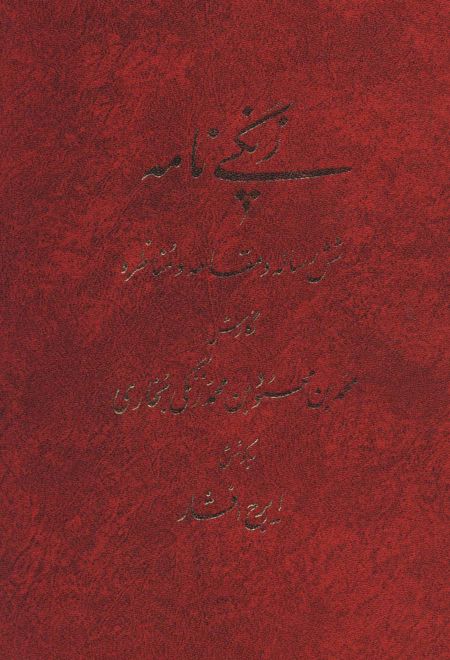 زنگی نامه
شش رساله و مقامه و مناظره
نگارش
محمد بن محمود بن محمد زنگی بخاری
بکوشش
ایرج افشار